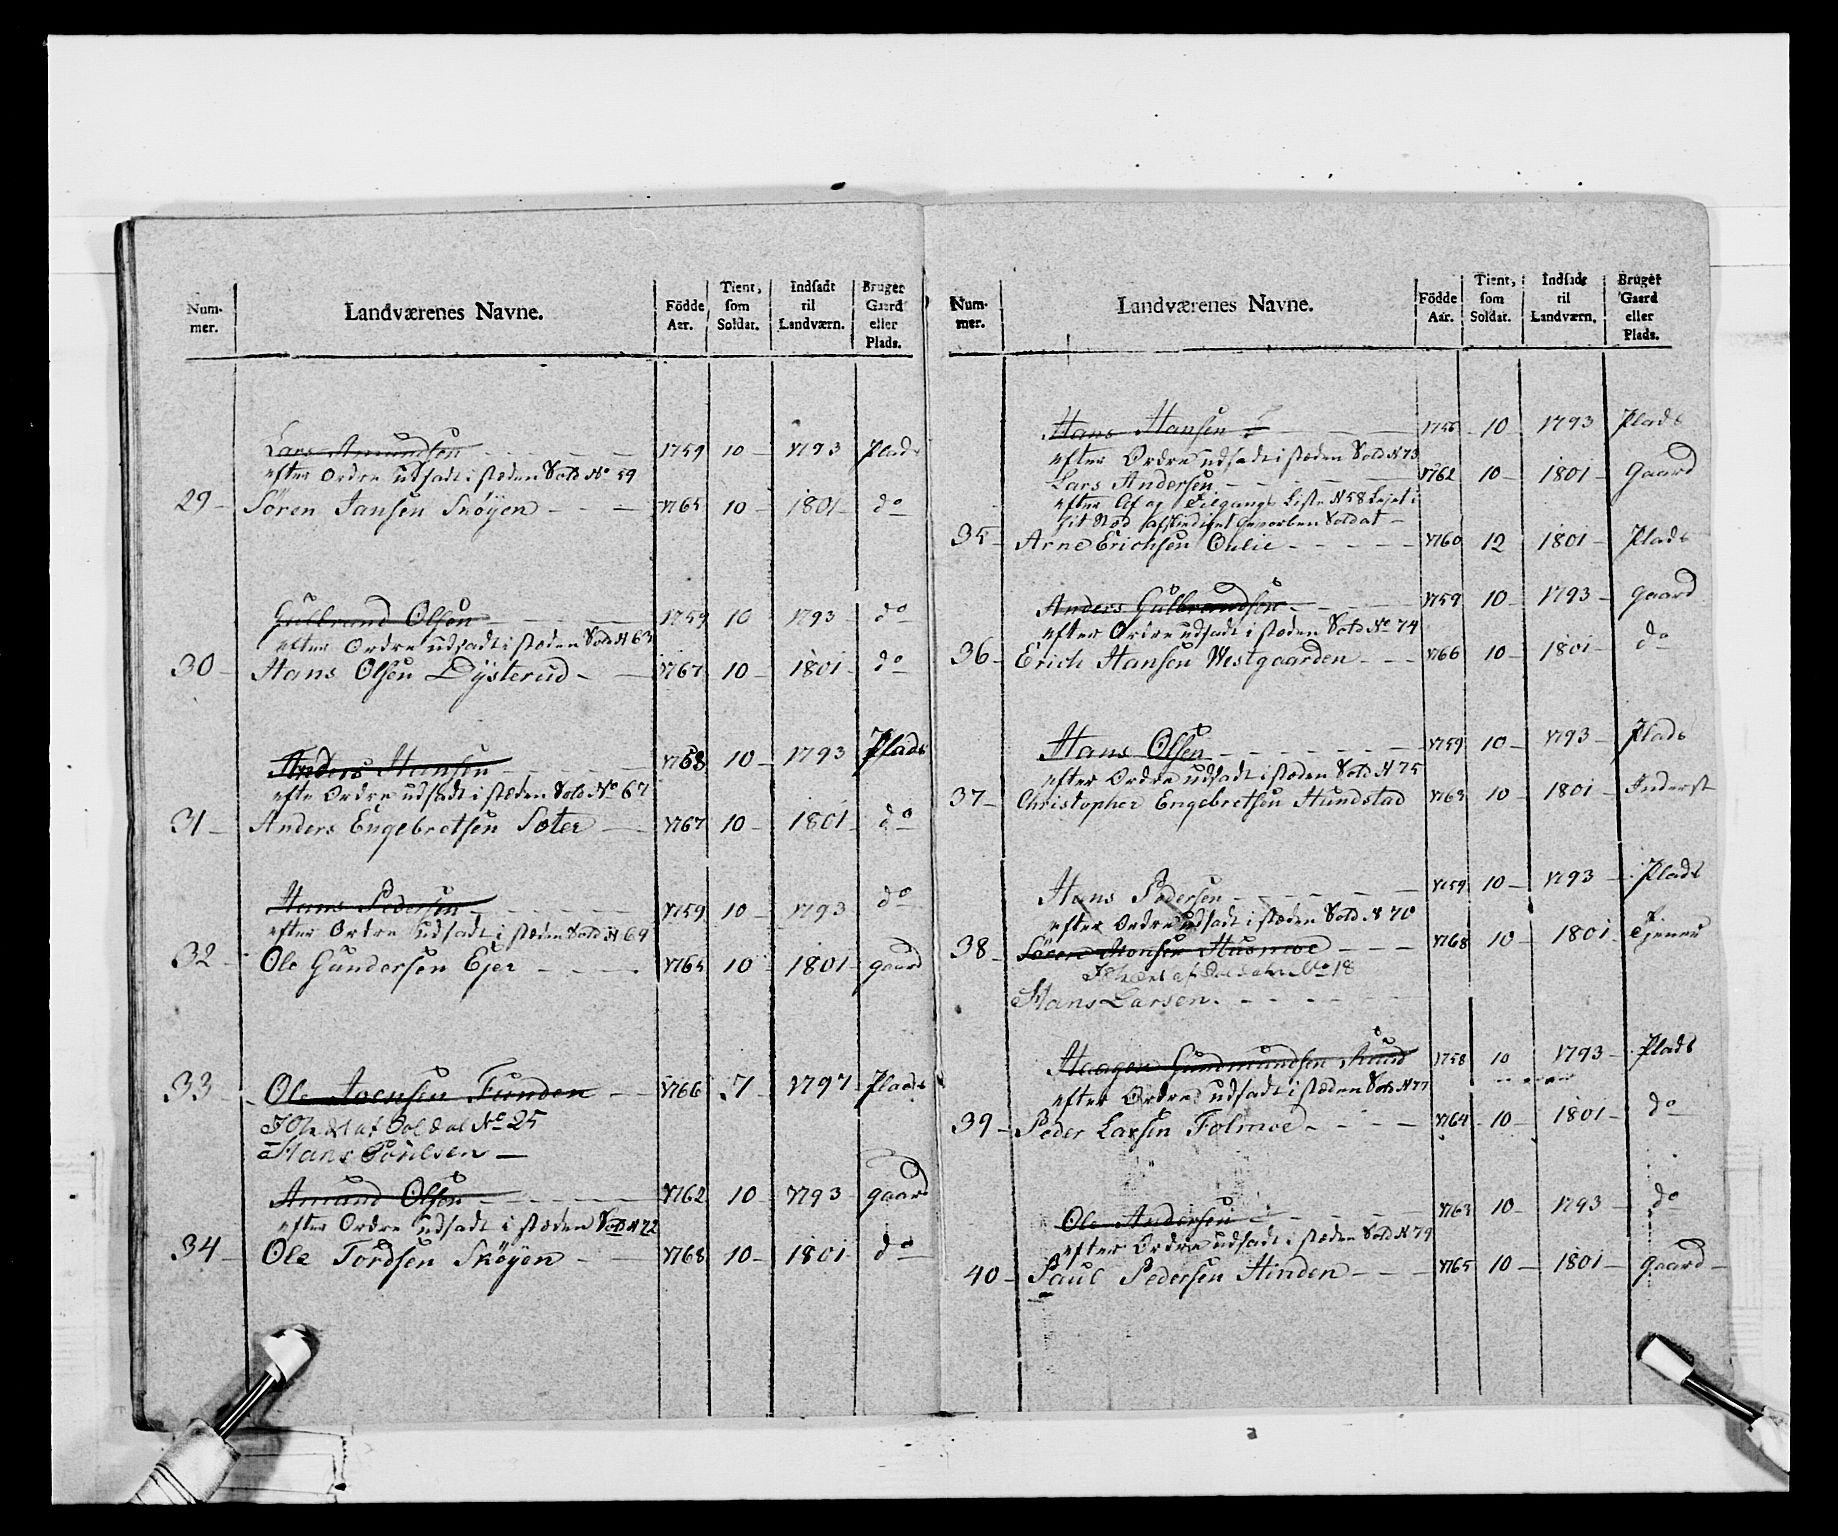 Num-
mer.
Landværenes Navne.
Födde
Aar.
Tient,
som
Soldat.
Indsadt
til
Landværn.
Bruger
Gaard
eller
Plads.
Lars Amundsen - - - 1759 10 - 1793 Plads
efter Ordre udsadt i stæden Sold No 59
29 - Sören Jansen Skøyen - - - 1765 10 - 1801 - do
Gulbrand Olsen - - - 1759 10 1793 do
efter Ordre udsadt i stæden Sold N 63
30 - Hans Olsen Dÿsterud - - 1767 10 - 1801 - do
Anders Hansen - - - 1768 10 - 1793 Plads
efte Ordre udsadt i stæden Sold No 67
31 - Anders Engebretsen Soter - - 1767 10 - 1801 - do
Hans Pedersen - - - 1759 10 - 1793 do
efter Ordre udsadt i stæden Sold N 69
32 - Ole Gundersen Ejer - - - 1765 10 1801 - gaard
33 - Ole Joensen Funden - - 1766 7 - 1797 - Plads
af No 25
Hans Poulsen -
Amund Olsen - - - 1762 10 - 1793 gaard
efter Ordre udsadt i stæden Sold N 72
34 - Ole Tordsen Skøyen - - 1768 10 - 1801 do
Num-
mer.
Landværenes Navne.
Födde
Aar.
Tient,
som
Soldat.
Indsadt
til
Landværn.
Bruger
Gaard
eller
Plads.
Hans Hansen - - - 1756 - 10 - 1793 Plads
efter Ordre udsadt i stæden Sold N 73
Lars Andersen - - - 1762 10 - 1801 - gaard
efter Af og Tilgangs Liste N 58
Soldat -
35 - Arne Erichsen - - - 1760 12 1801 - Plads
Anders Gulbrandsen - - - 1759 10 - 1793 - gaard
efter Ordre udsadt i stæden Sold No 74
36 - Erich Hansen Westgaarden - - - 1766 10 - 1801 - do
Hans Olsen - - - 1759 10 - 1793 - Plads
efter Ordre udsadt i stæden Sold N 75
37 - Christopher Engebretsen Hundstad 1763 10 - 1801 - Inderst
Hans Pedersen - - - 1759 10 - 1793 - Plads
efter Ordre udsadt i stæden Sold N 76
38 - Monsen Husmoe - - - 1768 10 - 1801 - Tjener
af No 18
Hans Larsen. - - -
Haagen Gudmundsen Ruud 1758 10 1793 - Plads
efter Ordre udsadt i stæden Sold N 77
39 - Peder Larsen Folmoe - - - 1764 - 10 - 1801 - do
Ole Andersen - - - 1763 10 - 1793 - do
efter Ordre udsadt i stæden Sold N 79
40 - Paul Pedersen Hinden - - - 1765 10 - 1801 - gaard -